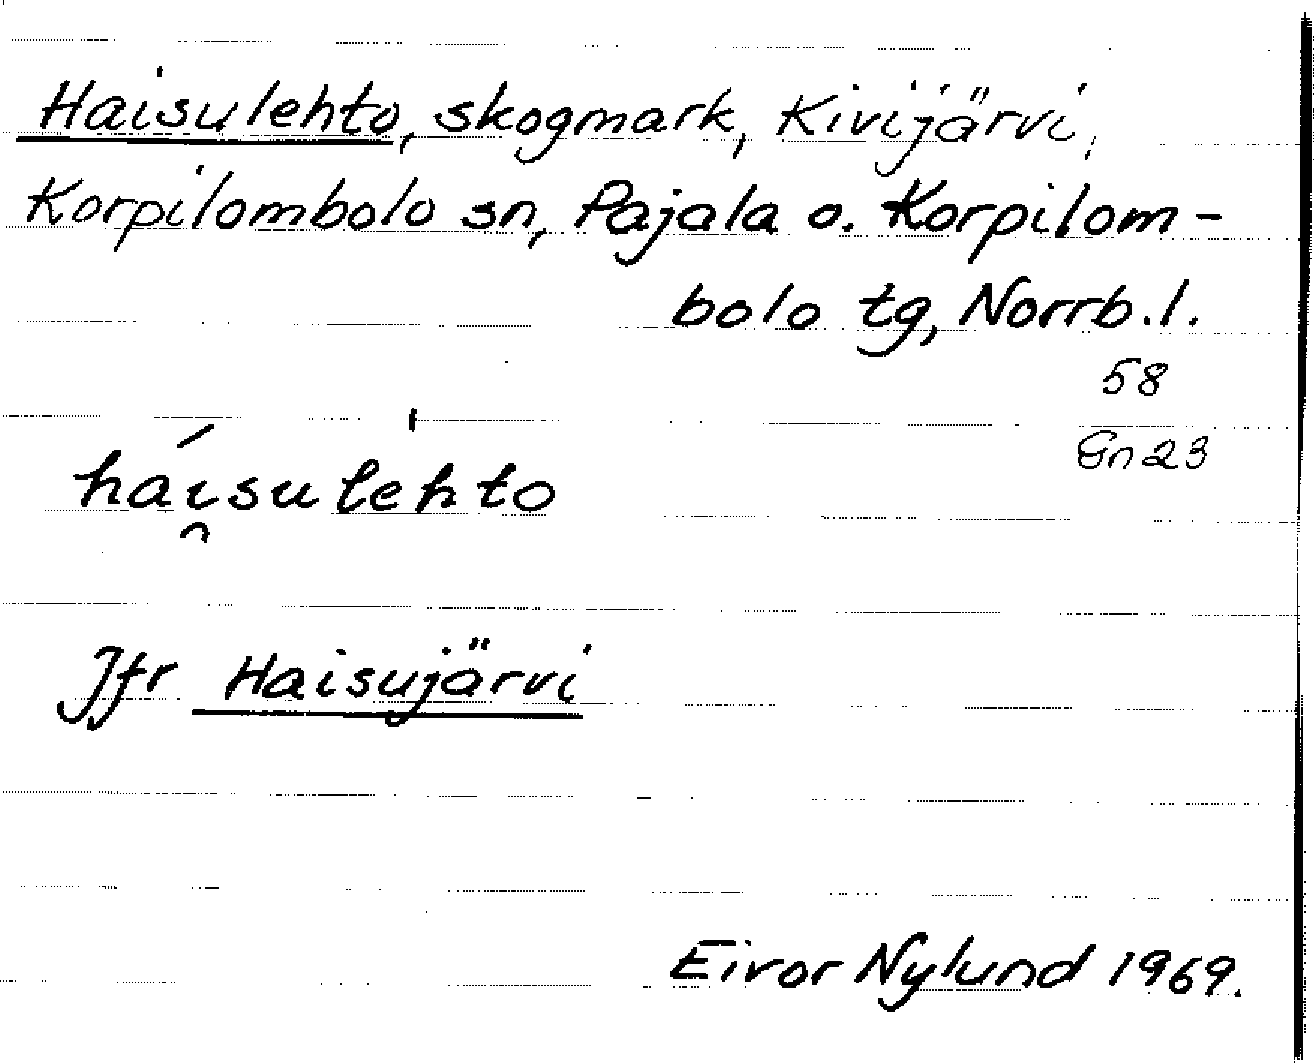 Haisulehto, skogmark, Kivijärvi,
Korpilombolo sn, Pajala o. Korpilom-
bolo tg, Norrb.l.
58
Gn23
hái̯sulehto
Jfr Haisujärvi
Eivor Nylund 1969.